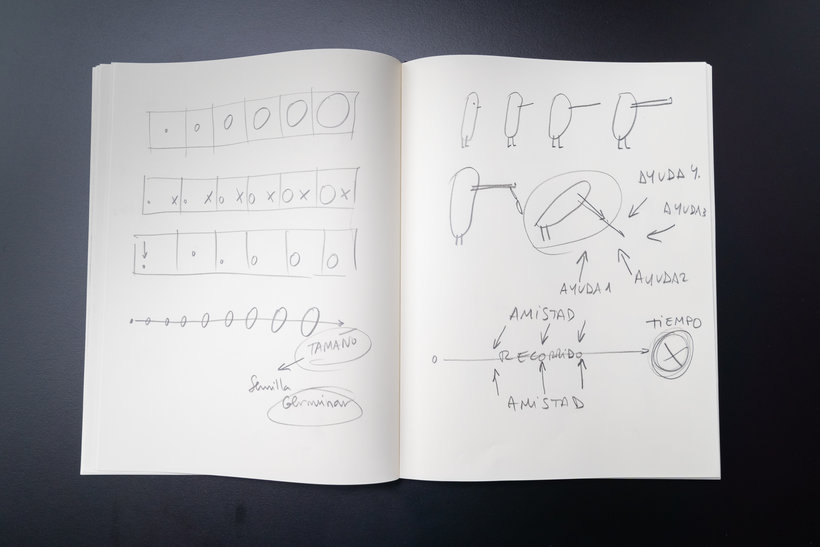 TAMAÑO
Semilla
Germinar
AYUDA 4.
AYUDA3
AYUDA 2
AYUDA 1
AMISTAD
TIEMPO
RECORRIDO
AMISTAD